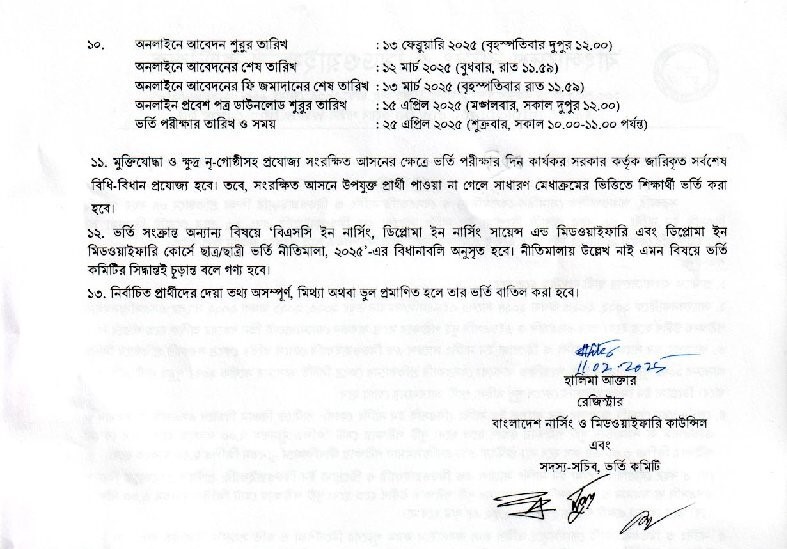 ১০. অনলাইনে আবেদন শুরুর তারিখ : ১৩ ফেব্রুয়ারি ২০২৫ (বৃহস্পতিবার দুপুর ১২.০০)
অনলাইনে আবেদনের শেষ তারিখ : ১২ মার্চ ২০২৫ (বুধবার, রাত ১১.৫৯)
অনলাইনে আবেদনের ফি জমাদানের শেষ তারিখ : ১৩ মার্চ ২০২৫ (বৃহস্পতিবার রাত ১১.৫৯)
অনলাইন প্রবেশ পত্র ডাউনলোড শুরুর তারিখ : ১৫ এপ্রিল ২০২৫ (মঙ্গলবার, সকাল দুপুর ১২.০০)
ভর্তি পরীক্ষার তারিখ ও সময় : ২৫ এপ্রিল ২০২৫ (শুক্রবার, সকাল ১০.০০-১১.০০ পর্যন্ত)
১১. মুক্তিযোদ্ধা ও ক্ষুদ্র নৃ-গোষ্ঠীসহ প্রযোজ্য সংরক্ষিত আসনের ক্ষেত্রে ভর্তি পরীক্ষার দিন কার্যকর সরকার কর্তৃক জারিকৃত সর্বশেষ
বিধি-বিধান প্রযোজ্য হবে। তবে, সংরক্ষিত আসনে উপযুক্ত প্রার্থী পাওয়া না গেলে সাধারণ মেধাক্রমের ভিত্তিতে শিক্ষার্থী ভর্তি করা
হবে।
১২. ভর্তি সংক্রান্ত অন্যান্য বিষয়ে ‘বিএসসি ইন নার্সিং, ডিপ্লোমা ইন নার্সিং সায়েন্স এন্ড মিডওয়াইফারি এবং ডিপ্লোমা ইন
মিডওয়াইফারি কোর্সে ছাত্র/ছাত্রী ভর্তি নীতিমালা, ২০২৫’-এর বিধানাবলি অনুসৃত হবে। নীতিমালায় উল্লেখ নাই এমন বিষয়ে ভর্তি
কমিটির সিদ্ধান্তই চূড়ান্ত বলে গণ্য হবে।
১৩. নির্বাচিত প্রার্থীদের দেয়া তথ্য অসম্পূর্ণ, মিথ্যা অথবা ভুল প্রমাণিত হলে তার ভর্তি বাতিল করা হবে।
11.02.2025
হালিমা আক্তার
রেজিস্টার
বাংলাদেশ নার্সিং ও মিডওয়াইফারি কাউন্সিল
এবং
সদস্য-সচিব, ভর্তি কমিটি